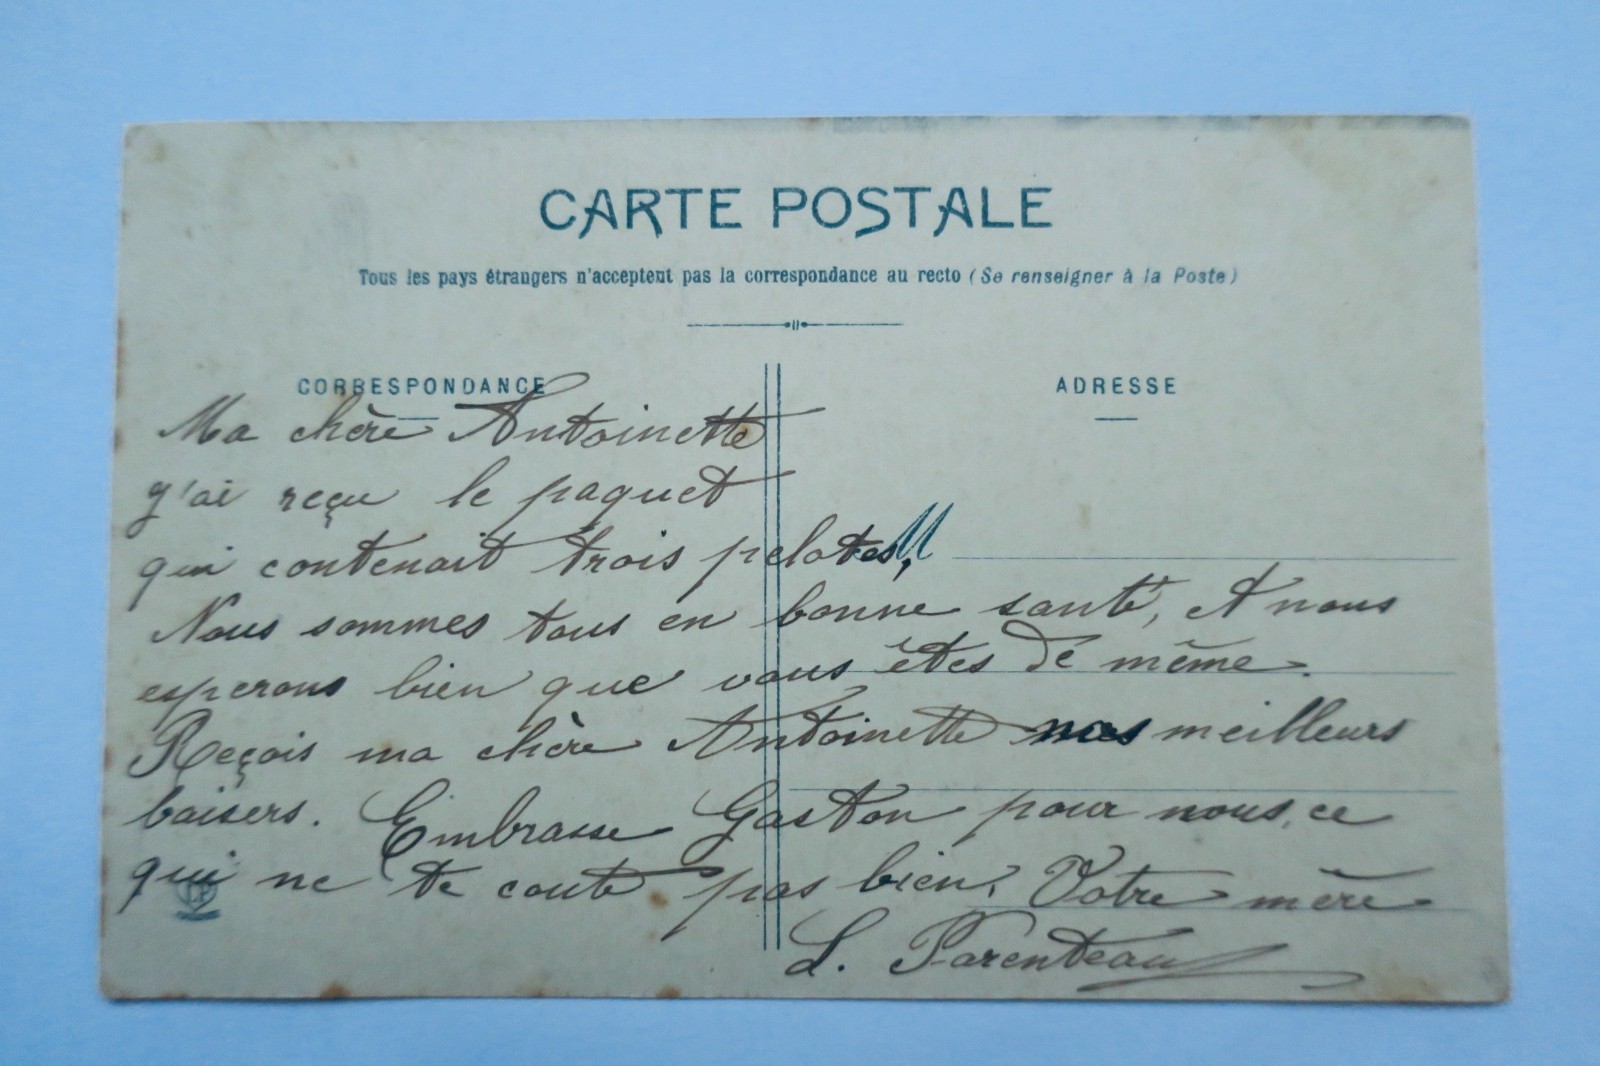 CARTE POSTALE
Tous les pays étrangers n'acceptent pas la correspondance au recto (Se renseigner à la Poste)
CORRESPONDANCE
ADRESSE
Ma chère Antoinette
j'ai reçu le paquet
qui contenait trois pelotes,
Nous sommes tous en bonne santé, et nous
esperons bien que vous êtes de même.
Reçois ma chère Antoinette nos meilleurs
baisers. Embrasse Gaston pour nous, ce
qui ne te coute pas bien. Votre mère
L. Parenteau